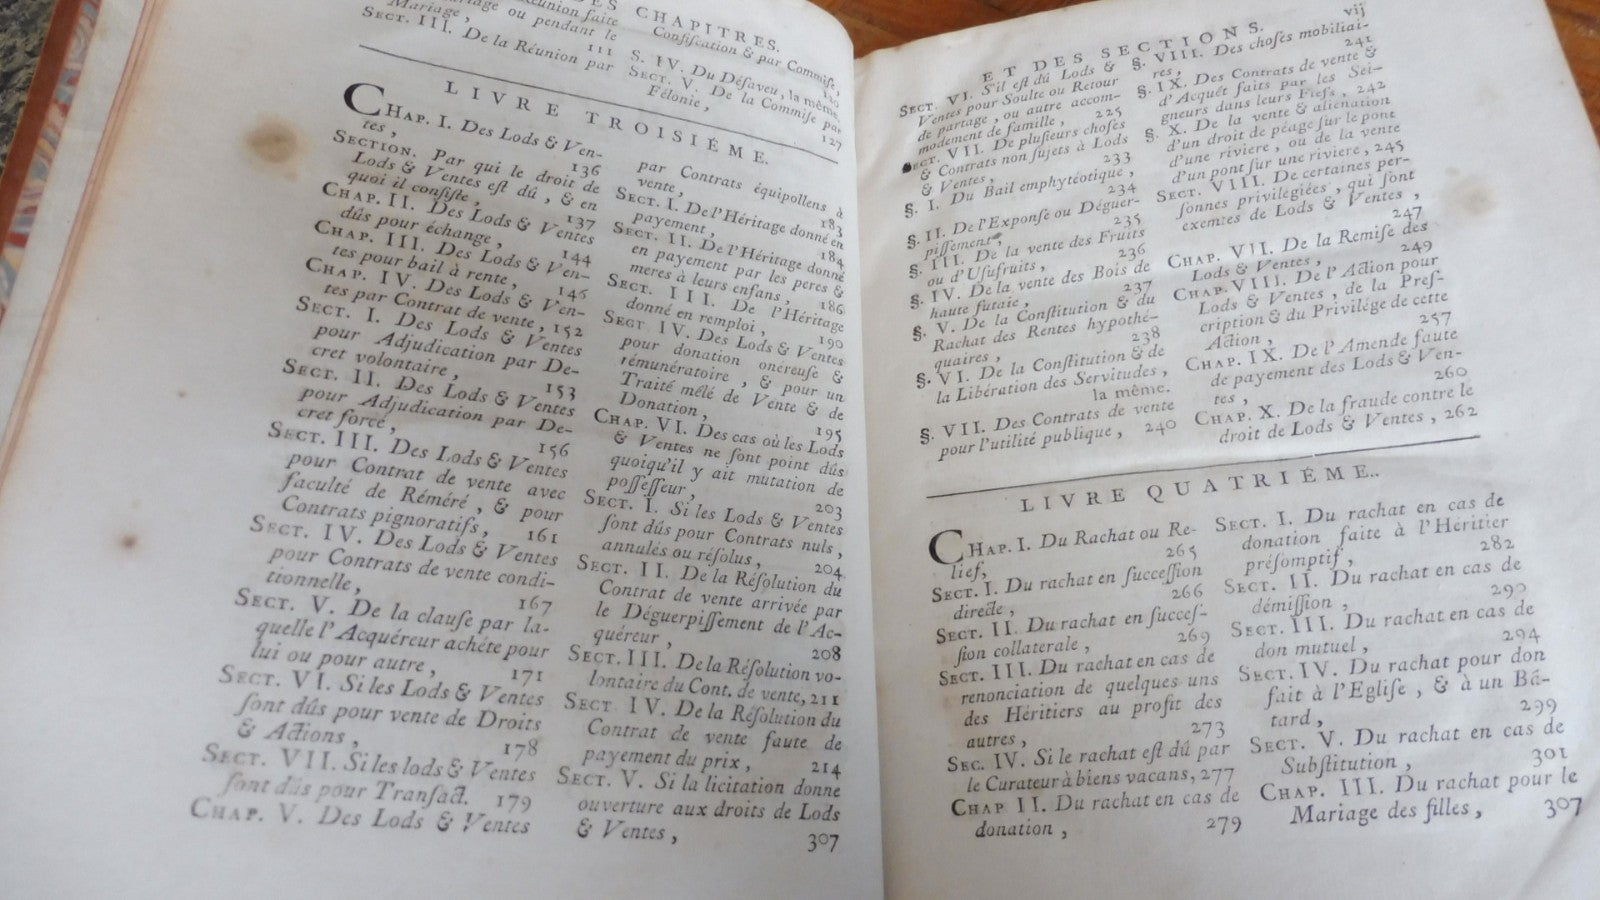 DES CHAPITRES.
Réunion faite
Mariage ou pendant le
Mariage,
111
SECT. III. De la Réunion par
Confiſcation & par Commiſe,
120
S. IV. Du Déſaveu, la même.
SECT. V. De la Commiſe par
Félonie,
127
LIVRE TROISIÉME.
CHAP. I. Des Lods & Ven-
tes,
136
SECTION. Par qui le droit de
Lods & Ventes eſt dû, & en
quoi il conſiſte,
137
CHAP. II. Des Lods & Ventes
dûs pour échange,
144
CHAP. III. Des Lods & Ven-
tes pour bail à rente,
146
CHAP. IV. Des Lods & Ven-
tes par Contrat de vente, 152
SECT. I. Des Lods & Ventes
pour Adjudication par De-
cret volontaire,
153
SECT. II. Des Lods & Ventes
pour Adjudication par De-
cret forcé,
156
SECT. III. Des Lods & Ventes
pour Contrat de vente avec
faculté de Réméré, & pour
Contrats pignoratifs,
161
SECT. IV. Des Lods & Ventes
pour Contrats de vente condi-
tionnelle,
167
SECT. V. De la clauſe par la-
quelle l'Acquéreur achéte pour
lui ou pour autre,
171
SECT. VI. Si les Lods & Ventes
ſont dûs pour vente de Droits
& Actions,
178
SECT. VII. Si les lods & Ventes
ſont dûs pour Tranſact. 179
CHAP. V. Des Lods & Ventes
par Contrats équipollens à
vente,
183
SECT. I. De l'Héritage donné en
payement,
184
SECT. II. De l'Héritage donné
en payement par les peres &
meres à leurs enfans,
186
SECT. III. De l'Héritage
donné en remploi,
190
SECT. IV. Des Lods & Ventes
pour donation onéreuſe &
rémunératoire, & pour un
Traité mêlé de Vente & de
Donation,
195
CHAP. VI. Des cas où les Lods
& Ventes ne ſont point dûs
quoiqu'il y ait mutation de
poſſeſſeur,
203
SECT. I. Si les Lods & Ventes
ſont dûs pour Contrats nuls,
annulés ou réſolus,
204
SECT. II. De la Réſolution du
Contrat de vente arrivée par
le Déguerpiſſement de l'Ac-
quéreur,
208
SECT. III. De la Réſolution vo-
lontaire du Cont. de vente, 211
SECT. IV. De la Réſolution du
Contrat de vente faute de
payement du prix,
214
SECT. V. Si la licitation donne
ouverture aux droits de Lods
& Ventes,
307
ET DES SECTIONS. vij
SECT. VI. S'il eſt dû Lods &
Ventes pour Soulte ou Retour
de partage, ou autre accom-
modement de famille,
225
SECT. VII. De pluſieurs choſes
& Contrats non ſujets à Lods
& Ventes,
233
§. I. Du Bail emphytéotique,
234
§. II. De l'Exponſe ou Déguer-
piſſement,
235
§. III. De la vente des Fruits
ou d'Uſufruits,
236
§. IV. De la vente des Bois de
haute futaie,
237
§. V. De la Conſtitution & du
Rachat des Rentes hypothé-
quaires,
238
§. VI. De la Conſtitution & de
la Libération des Servitudes,
la même.
§. VII. Des Contrats de vente
pour l'utilité publique, 240
§. VIII. Des choſes mobiliai-
res,
241
§. IX. Des Contrats de vente &
d'Acquêt faits par les Sei-
gneurs dans leurs Fiefs, 242
§. X. De la vente & aliénation
d'un droit de péage ſur le pont
d'une riviere, ou de la vente
d'un pont ſur une riviere, 245
SECT. VIII. De certaines per-
ſonnes privilegiées, qui ſont
exemtes de Lods & Ventes,
247
CHAP. VII. De la Remiſe des
Lods & Ventes,
249
CHAP. VIII. De l'Action pour
Lods & Ventes, de la Preſ-
cription & du Privilége de cette
Action,
257
CHAP. IX. De l'Amende faute
de payement des Lods & Ven-
tes,
260
CHAP. X. De la fraude contre le
droit de Lods & Ventes, 262
LIVRE QUATRIÉME..
CHAP. I. Du Rachat ou Re-
lief,
265
SECT. I. Du rachat en ſucceſſion
directe,
266
SECT. II. Du rachat en ſucceſ-
ſion collaterale,
269
SECT. III. Du rachat en cas de
renonciation de quelques uns
des Héritiers au profit des
autres,
273
SEC. IV. Si le rachat eſt dû par
le Curateur à biens vacans, 277
CHAP II. Du rachat en cas de
donation,
279
SECT. I. Du rachat en cas de
donation faite à l'Héritier
préſomptif,
282
SECT. II. Du rachat en cas de
démiſſion,
290
SECT. III. Du rachat en cas de
don mutuel,
294
SECT. IV. Du rachat pour don
fait à l'Egliſe, & à un Bâ-
tard,
299
SECT. V. Du rachat en cas de
Subſtitution,
301
CHAP. III. Du rachat pour le
Mariage des filles,
307